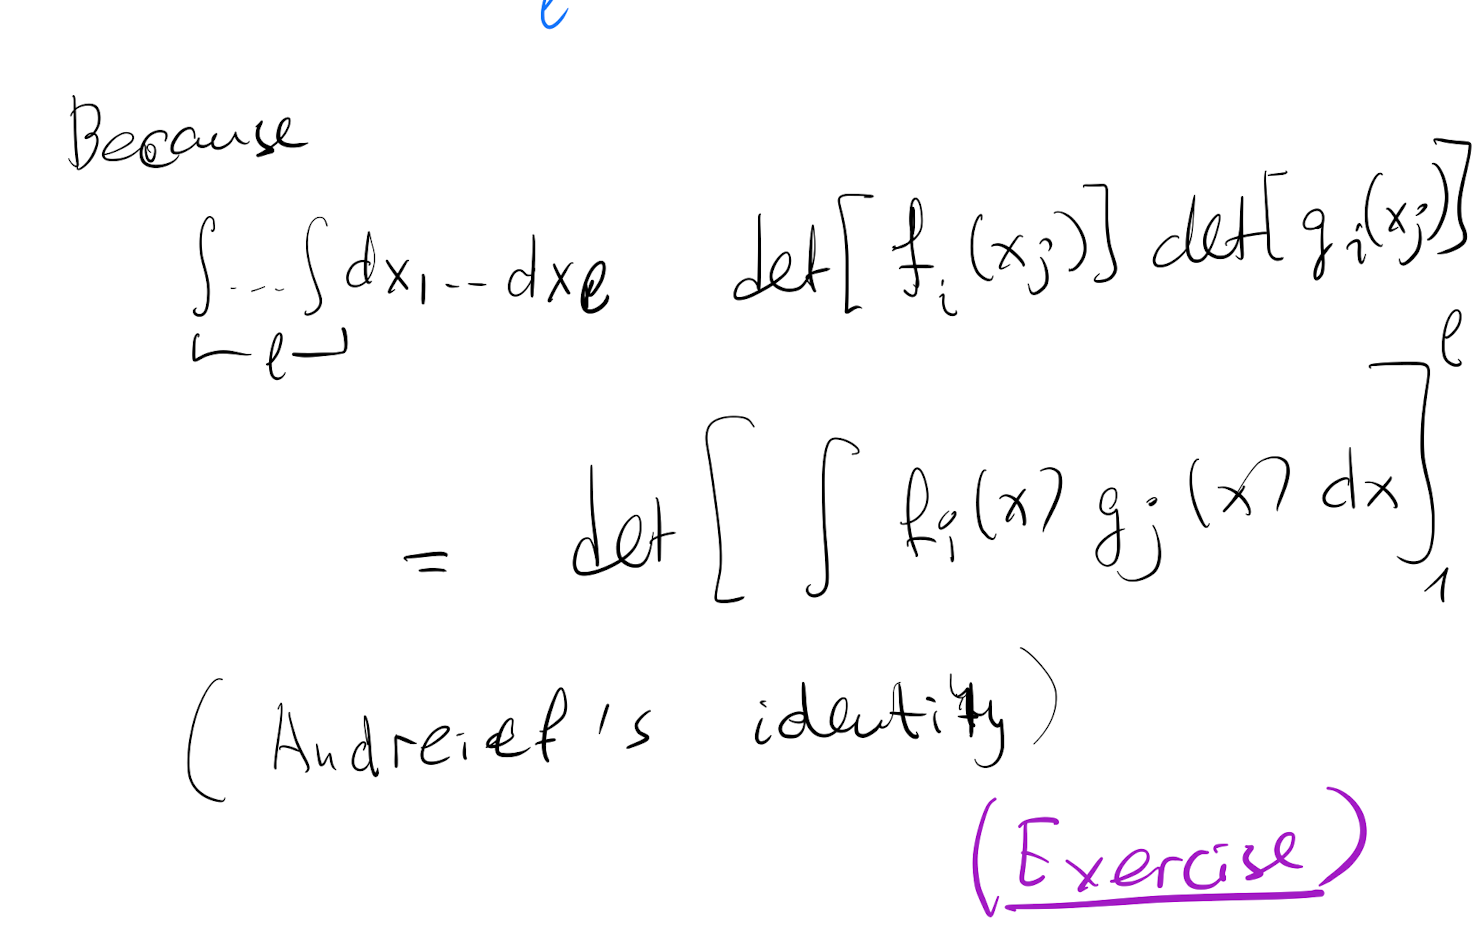 e
Because
∫...∫ dx₁...dxℓ det[fᵢ(xⱼ)] det[gᵢ(xⱼ)]
ℓ
= det[∫ fᵢ(x) gⱼ(x) dx]₁^ℓ
(Andreief's identity)
(Exercise)